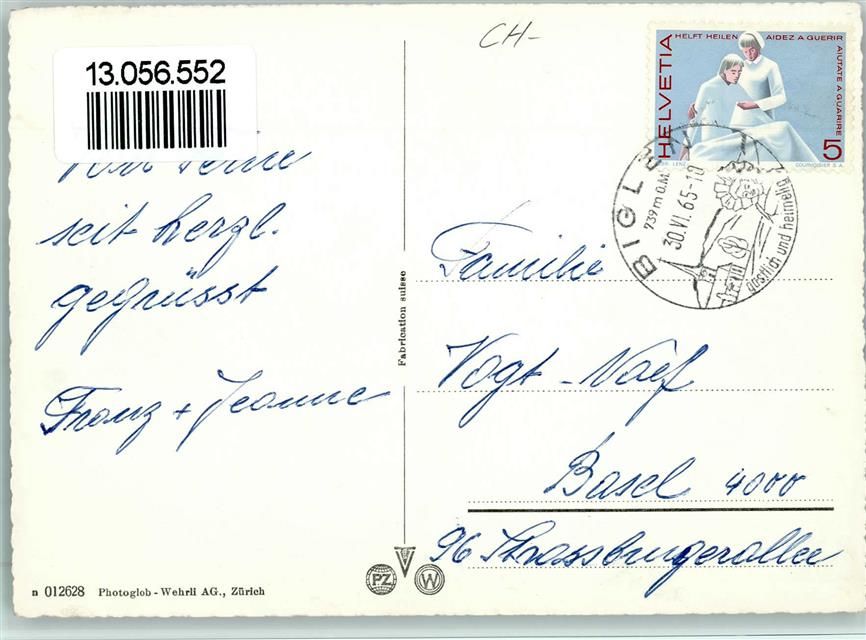 CH-
13.056.552
HELVETIA
HELFT HEILEN AIDEZ A GUERIR
AIUTATE A GUARIRE
5
COURVOISIER S.A.
BIGLEN
739 m ü.M.
30.VI.65-18
gastlich und heimelig
Ferne
seit herzl.
gegrüsst
Franz + Jeanne
Fabrication suisse
Familie
Vogt-Naef
Basel 4000
96 Strassburgerallee
PZ
W
n 012628 Photoglob-Wehrli AG., Zürich